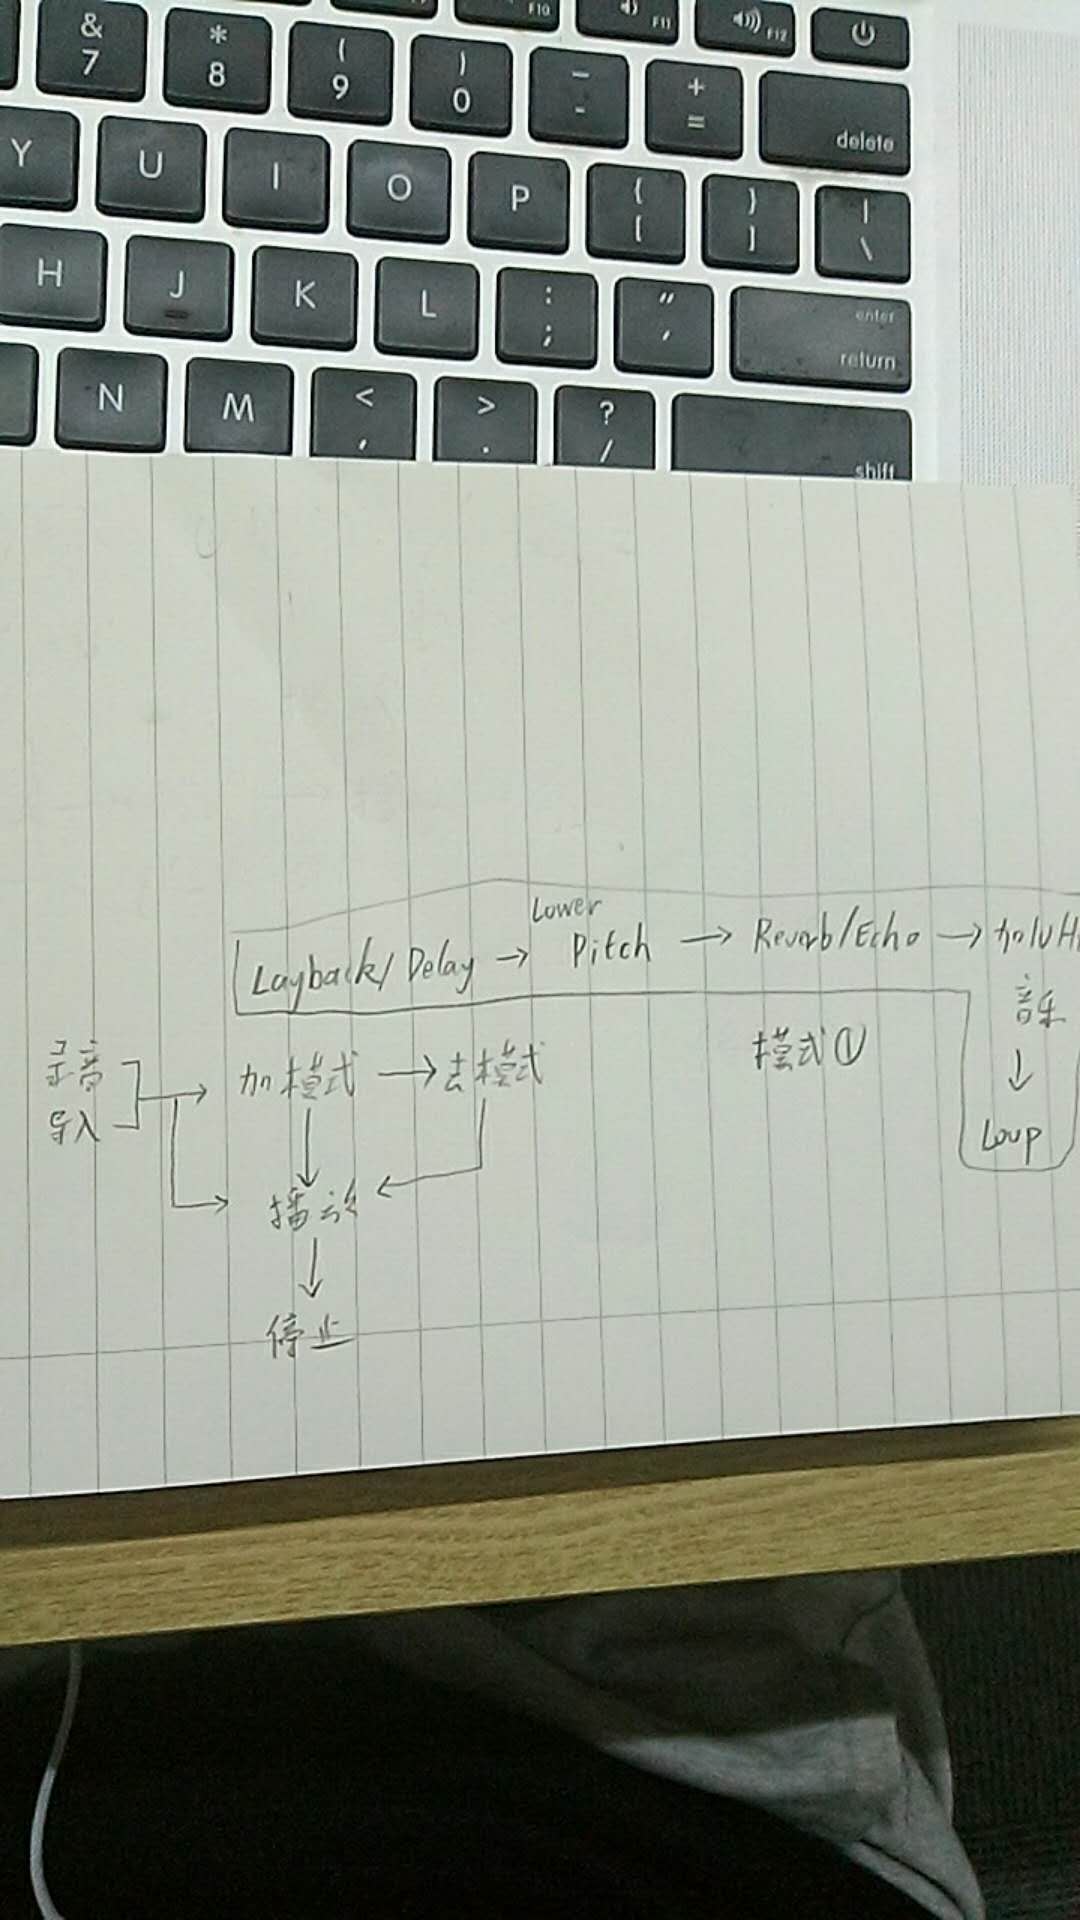 F10 F11 F12
& 7 * 8 ( 9 ) 0 _ - + = delete
Y U I O P { [ } ] | \
H J K L : ; " ' enter return
N M < , > . ? / shift
Lower
Layback/Delay → Pitch → Reverb/Echo → 加
音乐
↓
Loup
模式①
录音
导入
→ 加模式 → 去模式
↓
播放
↓
停止